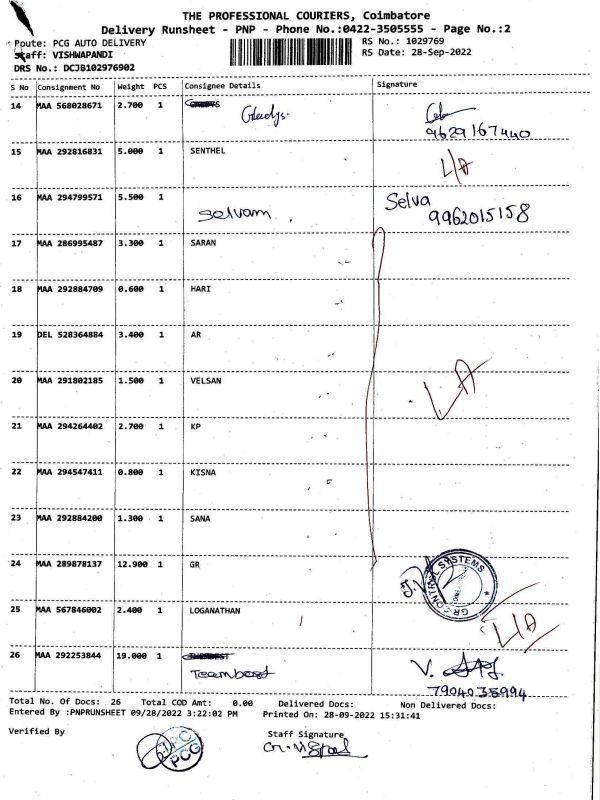 THE PROFESSIONAL COURIERS, Coimbatore
Delivery Runsheet - PNP - Phone No.:0422-3505555 - Page No.:2
Route: PCG AUTO DELIVERY RS No.: 1029769
Staff: VISHWAPANDI RS Date: 28-Sep-2022
DRS No.: DCJB102976902
S No Consignment No Weight PCS Consignee Details Signature
14 MAA 568028671 2.700 1 Gladys.
9629167440
15 MAA 292816831 5.000 1 SENTHEL L/A
16 MAA 294799571 5.500 1 Selvam. Selva
9962015158
17 MAA 286995487 3.300 1 SARAN
18 MAA 292884709 0.600 1 HARI
19 DEL 528364884 3.400 1 AR
20 MAA 291802185 1.500 1 VELSAN L/A
21 MAA 294264402 2.700 1 KP
22 MAA 294547411 0.800 1 KISNA
23 MAA 292884200 1.300 1 SANA
24 MAA 289878137 12.900 1 GR GR CONTROL SYSTEMS
25 MAA 567846002 2.400 1 LOGANATHAN L/A
26 MAA 292253844 19.000 1 Teambest V.
7904035994
Total No. Of Docs: 26 Total COD Amt: 0.00 Delivered Docs: Non Delivered Docs:
Entered By :PNPRUNSHEET 09/28/2022 3:22:02 PM Printed On: 28-09-2022 15:31:41
Verified By Staff Signature
PCG